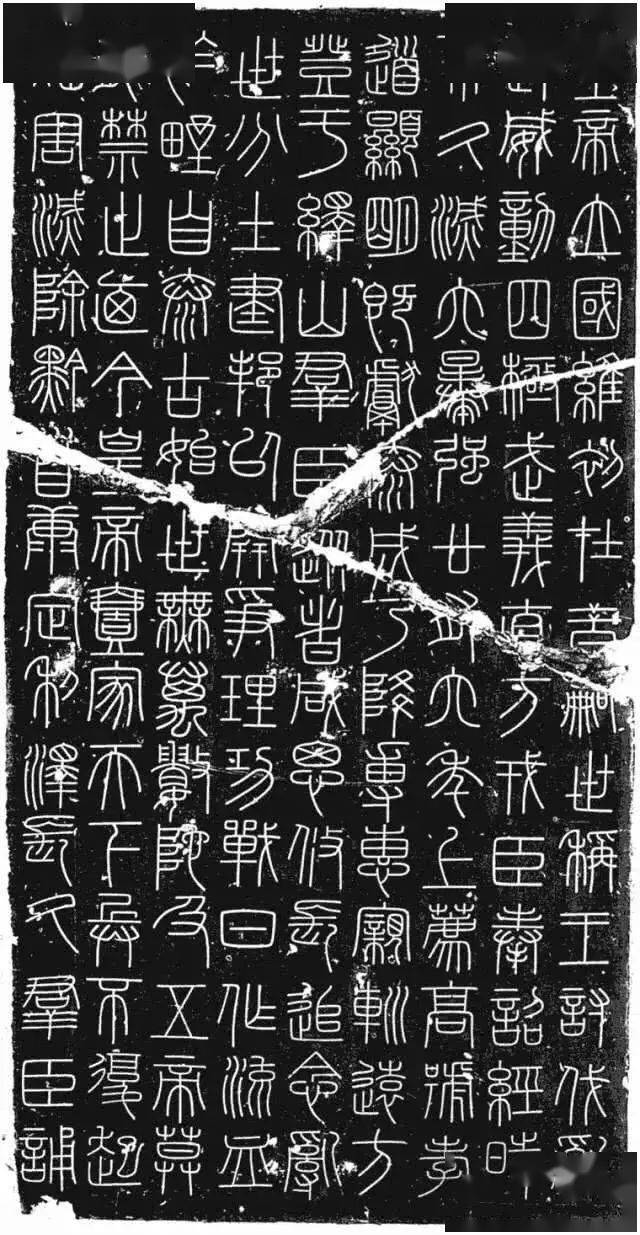 帝立國維初在昔嗣世稱王討伐
威動四極武義直方戎臣奉詔經時
久滅六暴強廿有六年上薦高號孝
道顯明既獻泰成乃降專惠親巡遠方
登于繹山羣臣從者咸思攸長追念亂
世分土建邦以開爭理功戰日作流血
野自泰古始世無萬數陀及五帝莫
禁止廼今皇帝壹家天下兵不復起
害滅除黔首康定利澤長久羣臣誦